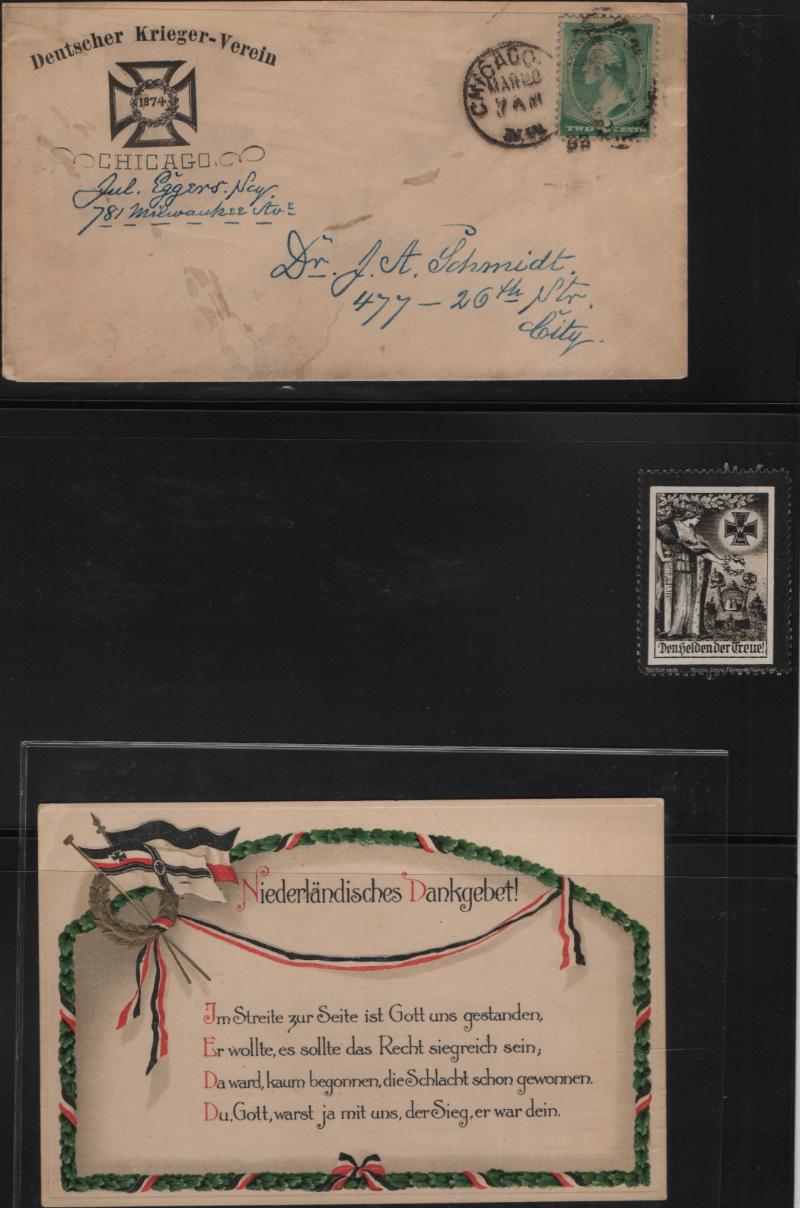 Deutscher Krieger-Verein
1874
CHICAGO.
Jul. Eggers. Scy.
781 Milwaukee Ave
CHICAGO.
MAR 20
7 AM
TWO 2 CENTS
Dr. J. A. Schmidt.
477 – 26th Str.
City.
W
Den Helden der Treue!
Niederländisches Dankgebet!
Im Streite zur Seite ist Gott uns gestanden,
Er wollte, es sollte das Recht siegreich sein;
Da ward, kaum begonnen, die Schlacht schon gewonnen.
Du, Gott, warst ja mit uns, der Sieg, er war dein.